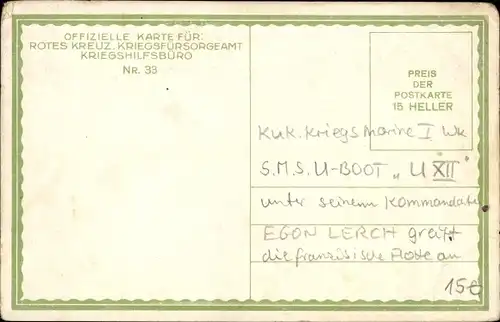 OFFIZIELLE KARTE FÜR:
ROTES KREUZ, KRIEGSFÜRSORGEAMT
KRIEGSHILFSBÜRO
NR. 33
PREIS
DER
POSTKARTE
15 HELLER
KuK. Kriegsmarine I Wk
S.M.S. U-BOOT „U XII"
unter seinem Kommandate
EGON LERCH greift
die französische Flotte an
15€